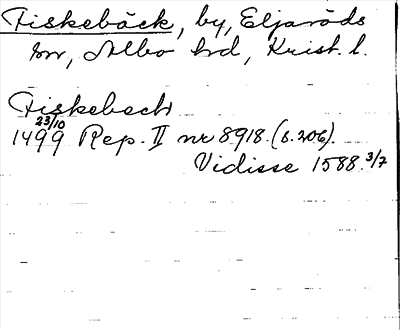 Fiskebäck, by, Eljaröds
sn, Albo hd, Krist. l.
Fiskebeck
23/10
1499 Rep. II nr 8918. (s. 206).
Vidisse 1588 3/7